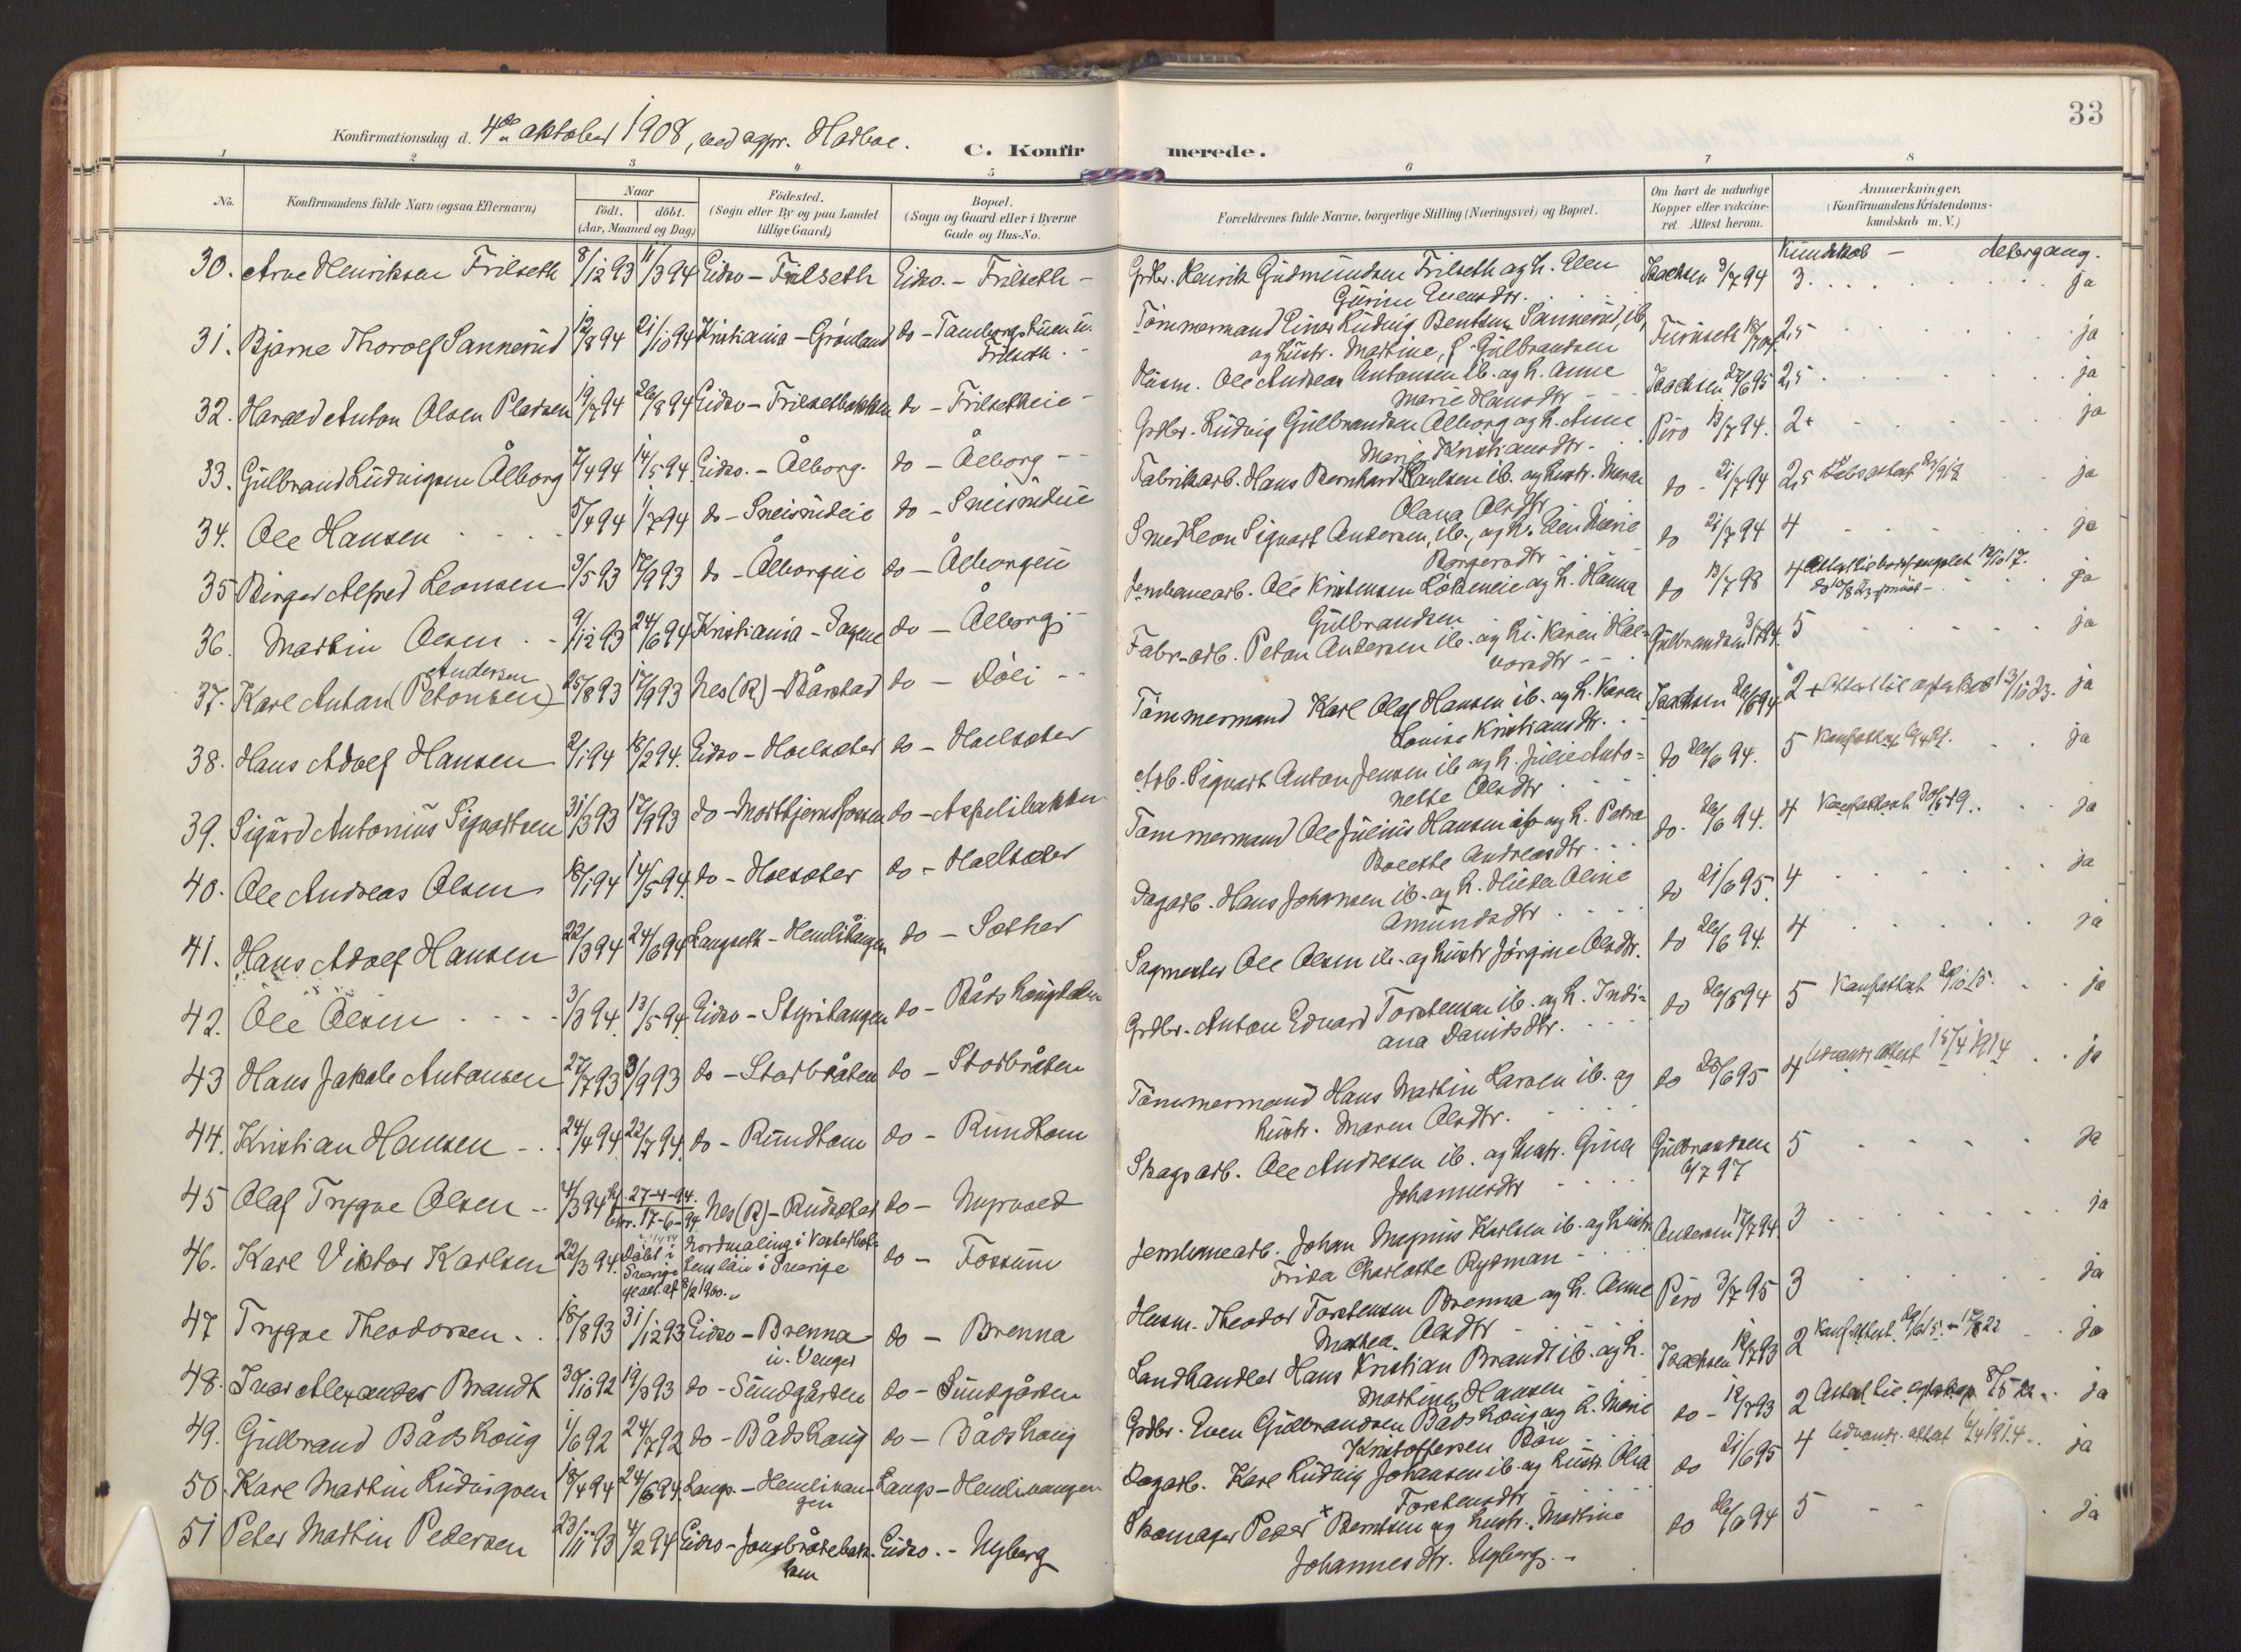 33
Konfirmationsdag d. 4de oktober 1908, ved sgpr. Hodboe.
C. Konfirmerede.
1 2 3 4 5 6 7 8
No. Konfirmandens fulde Navn (ogsaa Efternavn) Naar født. døbt. (Aar, Maaned og Dag) Födested. (Sogn eller By og paa Landet tillige Gaard) Bopæl. (Sogn og Gaard eller i Byerne Gade og Hus-No. Forældrenes fulde Navne, borgerlige Stilling (Næringsvei) og Bopæl. Om havt de naturlige Kopper eller vakcineret. Attest herom. Anmærkninger. (Konfirmandens Kristendomskundskab m. V.)
Kundskab –
30. Arne Henriksen Frilseth 8/12 93 11/3 94 Eidsv – Frilseth Eidsv. – Frilseth – Grdbr. Henrik Gudmundsen Frilseth og h. Elen Isachsen 3/7 94 3. ja
31. Bjarne Thorolf Sannerud 12/8 94 21/10 94 Kristiania – Grönland do – Tømmermand Einar Ludvig Bentsen Sannerud, ib, 2,5 ja
og hustr. Martine, f. Gulbrandsen
32. Harald Anton Olsen Pladsen 19/7 94 26/8 94 Eidsv – Frilsetbakken do – Frilsetheie – Husm. Ole Andreas Antonsen ib. og h. Anne Isachsen 2,5 ja
Marie Hansdtr
33. Gulbrand Ludvigsen Ålborg 7/4 94 14/5 94 Eidsv. – Ålborg. do – Ålborg – Grdbr. Ludvig Gulbrandsen Ålborg og h. Anne Piro 13/7 94. 2+ ja
Marie Kristiansdtr.
34. Ole Hansen 5/4 94 1/7 94 do – Sneisrudeie do – Sneisrudeie Fabrikarb. Hans Bernhard Paulsen ib. og hustr. Maren do – 21/7 94 2,5 ja
Olava Olsdtr
35 Birger Alfred Leonsen 3/5 93 17/9 93 do – Ålborgeie do – Ålborgeie Smed Leon Sigvart Andersen, ib., og h. Elen Marie do 21/7 94 4 ja
Borgersdtr
36. Martin Olsen 9/12 93 24/6 94 Kristiania – Sagene do – Ålborg – Jernbanearb. Ole Kristensen og h. Hanna do 13/7 98 4 ja
Gulbrandsen
37. Karl Anton (Petonsen) Andersen 25/8 93 17/9 93 Nes (R) – Bårstad do – Dóli – Fabr-arb. Peton Andersen ib. og h. Karen Halvorsdtr – Gulbrandsen 3/7 94. 5 ja
38. Hans Adolf Hansen 2/1 94 18/2 94. Eidsv – Holsæter do – Holsæter Tømmermand Karl Olaf Hansen ib. og h. Karen Isachsen 26/6 94 2+ ja
Louise Kristiansdtr.
39. Sigurd Antonius Sigvartsen 31/3 93 17/9 93 do – do – Aspelibakken Arb. Sigvart Anton Jensen ib og h. Julie Antonette Olsdtr do 26/6 94. 5 ja
40. Ole Andreas Olsen 18/1 94 14/5 94. do – Holsæter do – Holsæter Tømmermand Ole Julius Hansen ib og h. Petra do. 26/6 94. 4 ja
Bolette Andreasdtr.
41. Hans Adolf Hansen 22/3 94 24/6 94 Langseth – Hemlivangen do – Sæther Dagarb. Hans Johansen ib. og h. Hilda Oline do 21/6 95. 4 ja
Amundsdtr
42. Ole Olsen 3/3 94. 13/5 94. Eidsv – Styritangen do – Bådshaug Sagmester Ole Olsen ib. og hustr Jörgine Olsdtr. do 26/6 94. 4 ja
43 Hans Jakob Antonsen 27/7 93 3/9 93 do – Storbråten do – Storbråten Grdbr. Anton Edvard Torstensen ib. og h. Indiana Davidsdtr. do 26/6 94 5 ja
44. Kristian Hansen 24/4 94 22/7 94. do – Rundtom do – Rundtom Tømmermand Hans Martin Larsen ib. og do 26/6 95 4 Udvandr. attest 15/4 1914 ja
hustr. Maren Olsdtr.
45 Olaf Trygve Olsen 4/3 94 hj. 27-4-94. bekr. 17-6-94 Nes (R) – Rudsæter do – Myrvold Skogsarb. Ole Andresen ib. og hustr. Gina Gulbrandsen 6/7 97 5 ja
Johannesdtr
46. Karl Viktor Karlsen 22/3 94. Döbt i Sverige Nordmaling i Vesterbottens län i Sverige do – Fossum Jernbanearb. Johan Magnus Karlsen ib. og hustr. Andersen 17/7 94. 3 ja
Frida Charlotte Rydman –
47 Trygve Theodorsen 18/8 93 31/12 93 Eidsv – Brenna u. Venger do – Brenna Husm. Theodor Torstensen Brenna og h. Anne Piro 3/7 95 3 ja
Mathea Olsdtr
48. Ivar Alexander Brandt 30/10 92 19/3 93 do – Sundgården do – Sundgården Landhandler Hans Kristian Brandt ib. og h. Isachsen 12/7 93 2 ja
Martine Hansen
49. Gulbrand Bådshaug 1/6 92 24/7 92 do – Bådshaug do – Bådshaug Grdbr. Even Gulbrandsen Bådshaug og h. Marie do – 12/7 93 2 ja
Kristoffersen Bøn
50. Karl Martin Ludvigsen 18/4 94 24/6 94. Langs. – Hemlivangen Langs – Hemlivangen Dagarb. Karl Ludvig Johansen ib. og hustr. Olia do 21/6 95 4 Udvandr. attest 6/4 1914 ja
Torstensdtr
51 Peter Martin Pedersen 23/11 93 4/2 94 Eidsv – Jonsbråtebakken Eidsv. – Nyberg Skomager Peder Berntsen og hustr. Martine do 26/6 94 5 ja
Johannesdtr. Nyberg. –